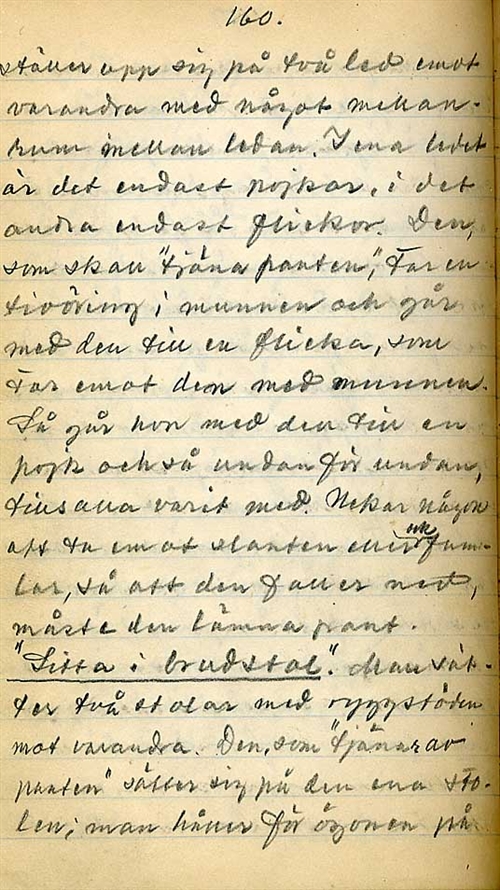 160.
ställer upp sig på två led emot
varandra med något mellan-
rum mellan ledan. I ena ledet
är det endast pojkar, i det
andra endast flickor. Den,
som skall "tjäna panten", tar en
tioöring i munnen och går
med den till en flicka, som
tar emot den med munnen.
Så går hon med den till en
pojk och så undan för undan,
tills alla varit med. Nekar någon
att ta emot slanten eller fum-
lar, så att den faller ned,
måste den lämna pant.
"Sitta i brudstol". Man sät-
ter två stolar med ryggstöden
mot varandra. Den, som "tjänar av
panten" sätter sig på den ena sto-
len; man håller för ögonen på